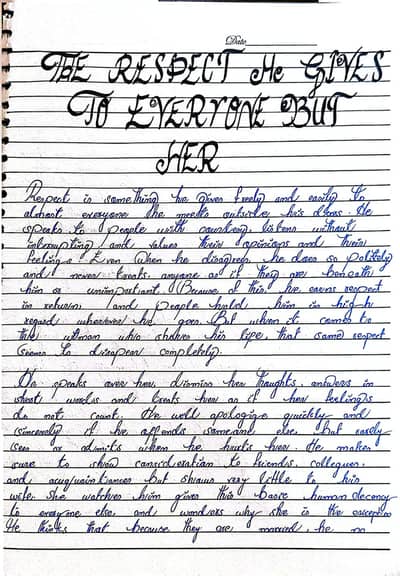 Date
THE RESPECT He GIVES
TO EVERYONE BUT
HER
Respect is something he gives freely and easily to
almost everyone he meets outside his doors. He
speaks to people with courtesy, listens without
interrupting and values their opinions and their
feelings. Even when he disagrees, he does so politely
and never treats anyone as if they are beneath
him or unimportant. Because of this, he earns respect
in return, and people hold him in high
regard wherever he goes. But when it comes to
the woman who shares his life, that same respect
seems to disappear completely.
He speaks over her, dismiss her thoughts, answers in
short words and treats her as if her feelings
do not count. He will apologize quickly and
sincerely if he offends someone else, but rarely
sees or admits when he hurts her. He makes
sure to show consideration to friends, collegues,
and acquaintances but shows very little to his
wife. She watches him gives this basic human decency
to everyone else, and wonders why she is the exception
He thinks that because they are married, he